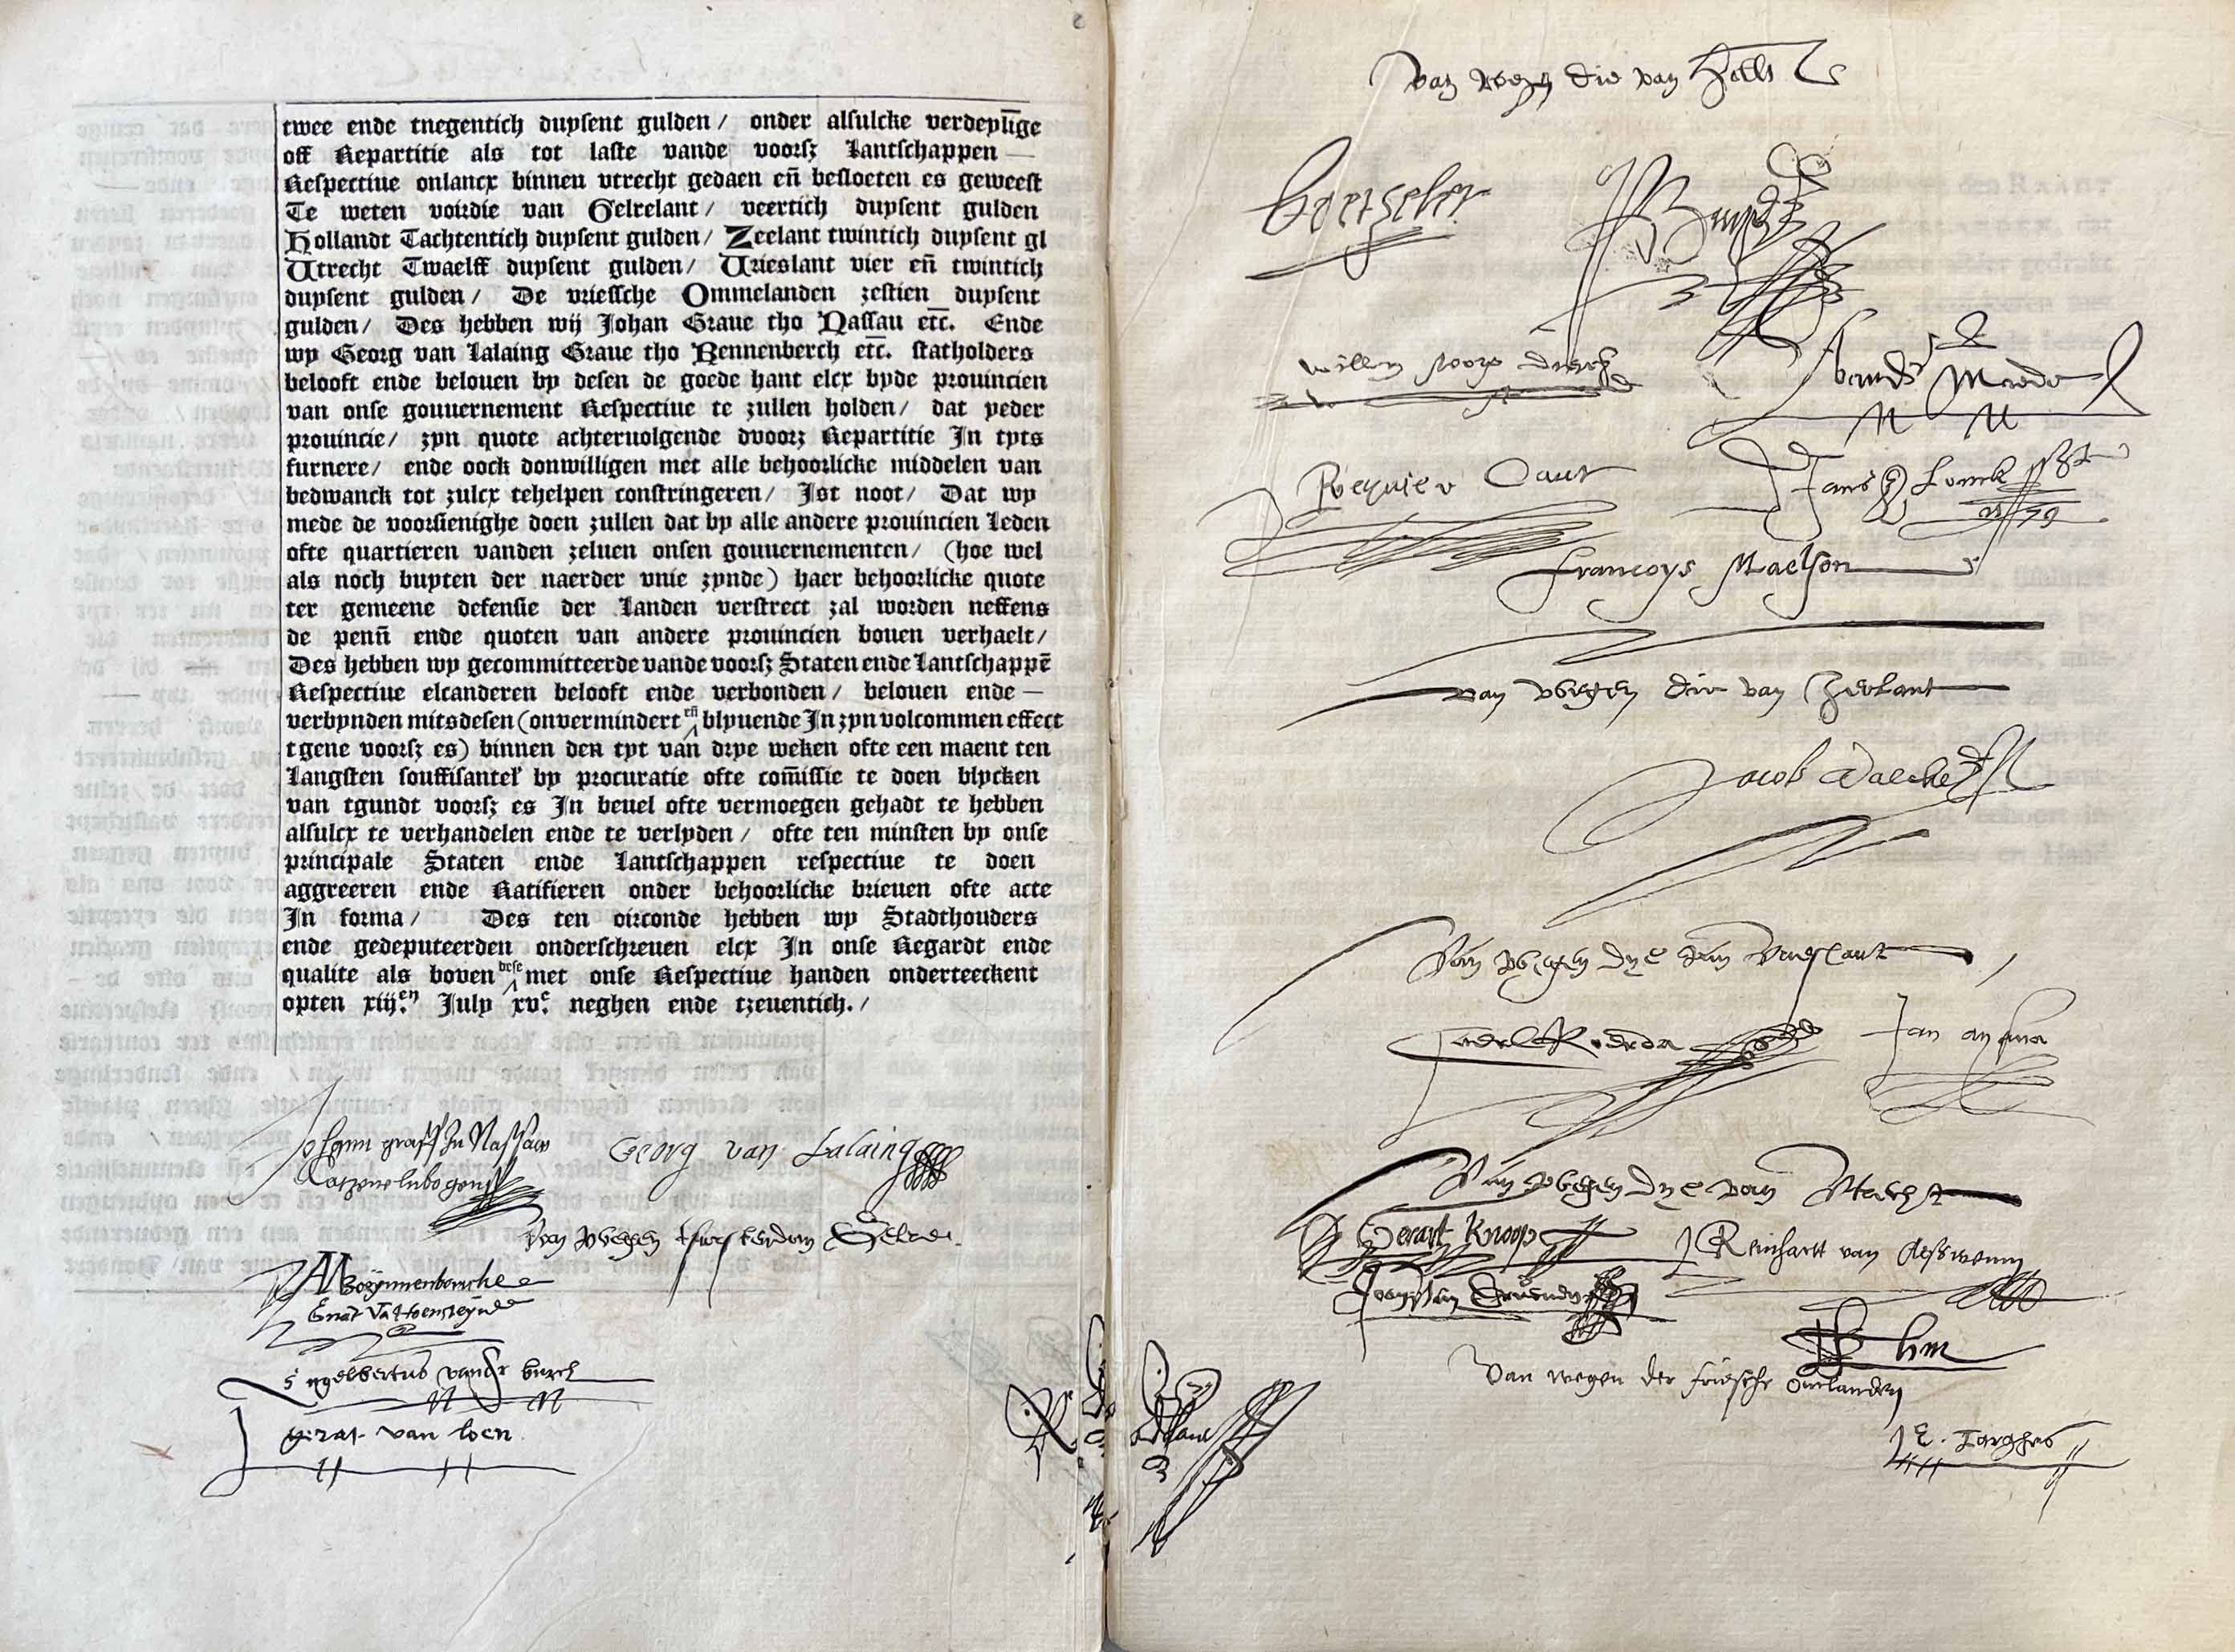 twee ende tnegentich duysent gulden / onder alsulcke verdeylīge
off Repartitie als tot laste vande voorsz Lantschappen —
Respectiue onlancx binnen vtrecht gedaen eñ besloeten es geweest
Te weten voirdie van Gelrelant / veertich duysent gulden
Hollandt Tachtentich duysent gulden / Zeelant twintich duysent gl
Utrecht Twaelff duysent gulden / Urieslant vier eñ twintich
duysent gulden / De vriessche Ommelanden zestien duysent
gulden / Des hebben wij Johan Graue tho Nassau etc̄. Ende
wy Georg van Lalaing Graue tho Rennenberch etc̄. statholders
belooft ende belouen by desen de goede hant elcx byde prouincien
van onse gouuernement Respectiue te zullen holden / dat yeder
prouincie / zyn quote achteruolgende dvoorz Repartitie In tyts
furnere / ende oock donwilligen met alle behoorlicke middelen van
bedwanck tot zulcx tehelpen constringeren / Ist noot / Dat wy
mede de voorsienighe doen zullen dat by alle andere prouincien Leden
ofte quartieren vanden zeluen onsen gouuernementen / (hoe wel
als noch buyten der naerder vnie zynde) haer behoorlicke quote
ter gemeene defensie der Landen verstrect zal worden neffens
de penn̄ ende quoten van andere prouincien bouen verhaelt /
Des hebben wy gecommitteerde vande voorsz Staten ende Lantschappē
Respectiue elcanderen belooft ende verbonden / belouen ende —
verbynden mitsdesen (onvermindert eñ blyuende In zyn volcommen effect
tgene voorsz es) binnen den tyt van drye weken ofte een maent ten
Langsten souffisantel' by procuratie ofte com̄issie te doen blycken
van tgundt voorsz es In beuel ofte vermoegen gehadt te hebben
alsulcx te verhandelen ende te verlyden / ofte ten minsten by onse
principale Staten ende Lantschappen respectiue te doen
aggreeren ende Ratifieren onder behoorlicke brieuen ofte acte
In forma / Des ten oirconde hebben wy Stadthouders
ende gedeputeerden onderschreuen elcx In onse Regardt ende
qualite als boven dese met onse Respectiue handen onderteeckent
opten xiij.en July xvc. neghen ende tzeuentich. /
Johann graff zu Nassaw
Catzenelnbogen
Georg van Lalaing
Van weghen
Gelre
Engelbertus vander burch
gerat van loen
van wegen die van Hollt
Willem
Reynier Cant
Francoys Maelson
van wegen die van Zeelant
Jacob Valcke
Van wegen dye van Vrieslant
Jan
Van wegen dye van Utrecht
Gerart Knoop
Reinhart van Aesswenn
Van wegen der friesche Omlanden